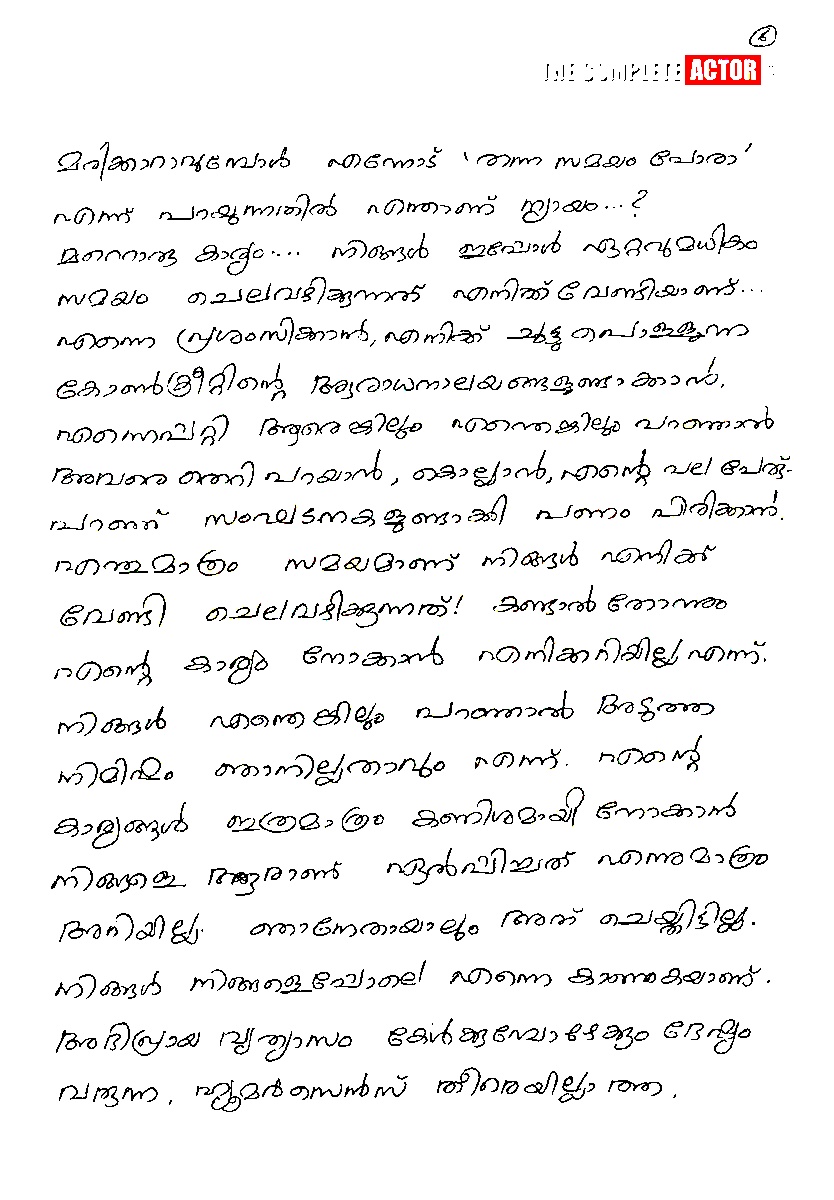 6
THE COMPLETE ACTOR
മരിക്കാറാവുമ്പോൾ എന്നോട് 'തന്ന സമയം പോരാ'
എന്ന് പറയുന്നതിൽ എന്താണ് ന്യായം...?
മറ്റൊരു കാര്യം.... നിങ്ങൾ ഇപ്പോൾ ഏറ്റവുമധികം
സമയം ചെലവഴിക്കുന്നത് എനിക്ക് വേണ്ടിയാണ്...
എന്നെ പ്രശംസിക്കാൻ, എനിക്ക് ചുട്ടു പൊള്ളുന്ന
കോൺക്രീറ്റിന്റെ ആരാധനാലയങ്ങളുണ്ടാക്കാൻ.
എന്നെപ്പറ്റി ആരെങ്കിലും എന്തെങ്കിലും പറഞ്ഞാൽ
അവനെ തെറി പറയാൻ, കൊല്ലാൻ, എന്റെ പല പേര്-
പറഞ്ഞ് സംഘടനകളുണ്ടാക്കി പണം പിരിക്കാൻ.
എന്തുമാത്രം സമയമാണ് നിങ്ങൾ എനിക്ക്
വേണ്ടി ചെലവഴിക്കുന്നത്! കണ്ടാൽ തോന്നും
എന്റെ കാര്യം നോക്കാൻ എനിക്കറിയില്ല എന്ന്.
നിങ്ങൾ എന്തെങ്കിലും പറഞ്ഞാൽ അടുത്ത
നിമിഷം ഞാനില്ലാതാവും എന്ന്. എന്റെ
കാര്യങ്ങൾ ഇത്രമാത്രം കണിശമായി നോക്കാൻ
നിങ്ങളെ ആരാണ് ഏൽപ്പിച്ചത് എന്നുമാത്രം
അറിയില്ല. ഞാനേതായാലും അത് ചെയ്തിട്ടില്ല.
നിങ്ങൾ നിങ്ങളെപ്പോലെ എന്നെ കാണുകയാണ്.
അഭിപ്രായ വ്യത്യാസം കേൾക്കുമ്പോഴേക്കും ദേഷ്യം
വരുന്ന, ഹ്യൂമർസെൻസ് തീരെയില്ലാത്ത,